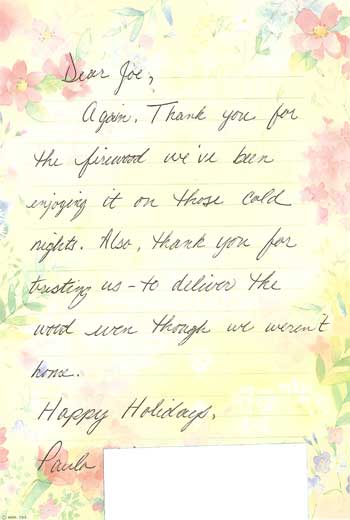 Dear Joe,
Again, Thank you for
the firewood we've been
enjoying it on those cold
nights. Also, thank you for
trusting us - to deliver the
wood even though we weren't
home.
Happy Holidays,
Paula